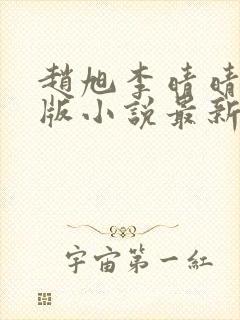 趙旭李晴晴
版小說最新
宇宙第一紅